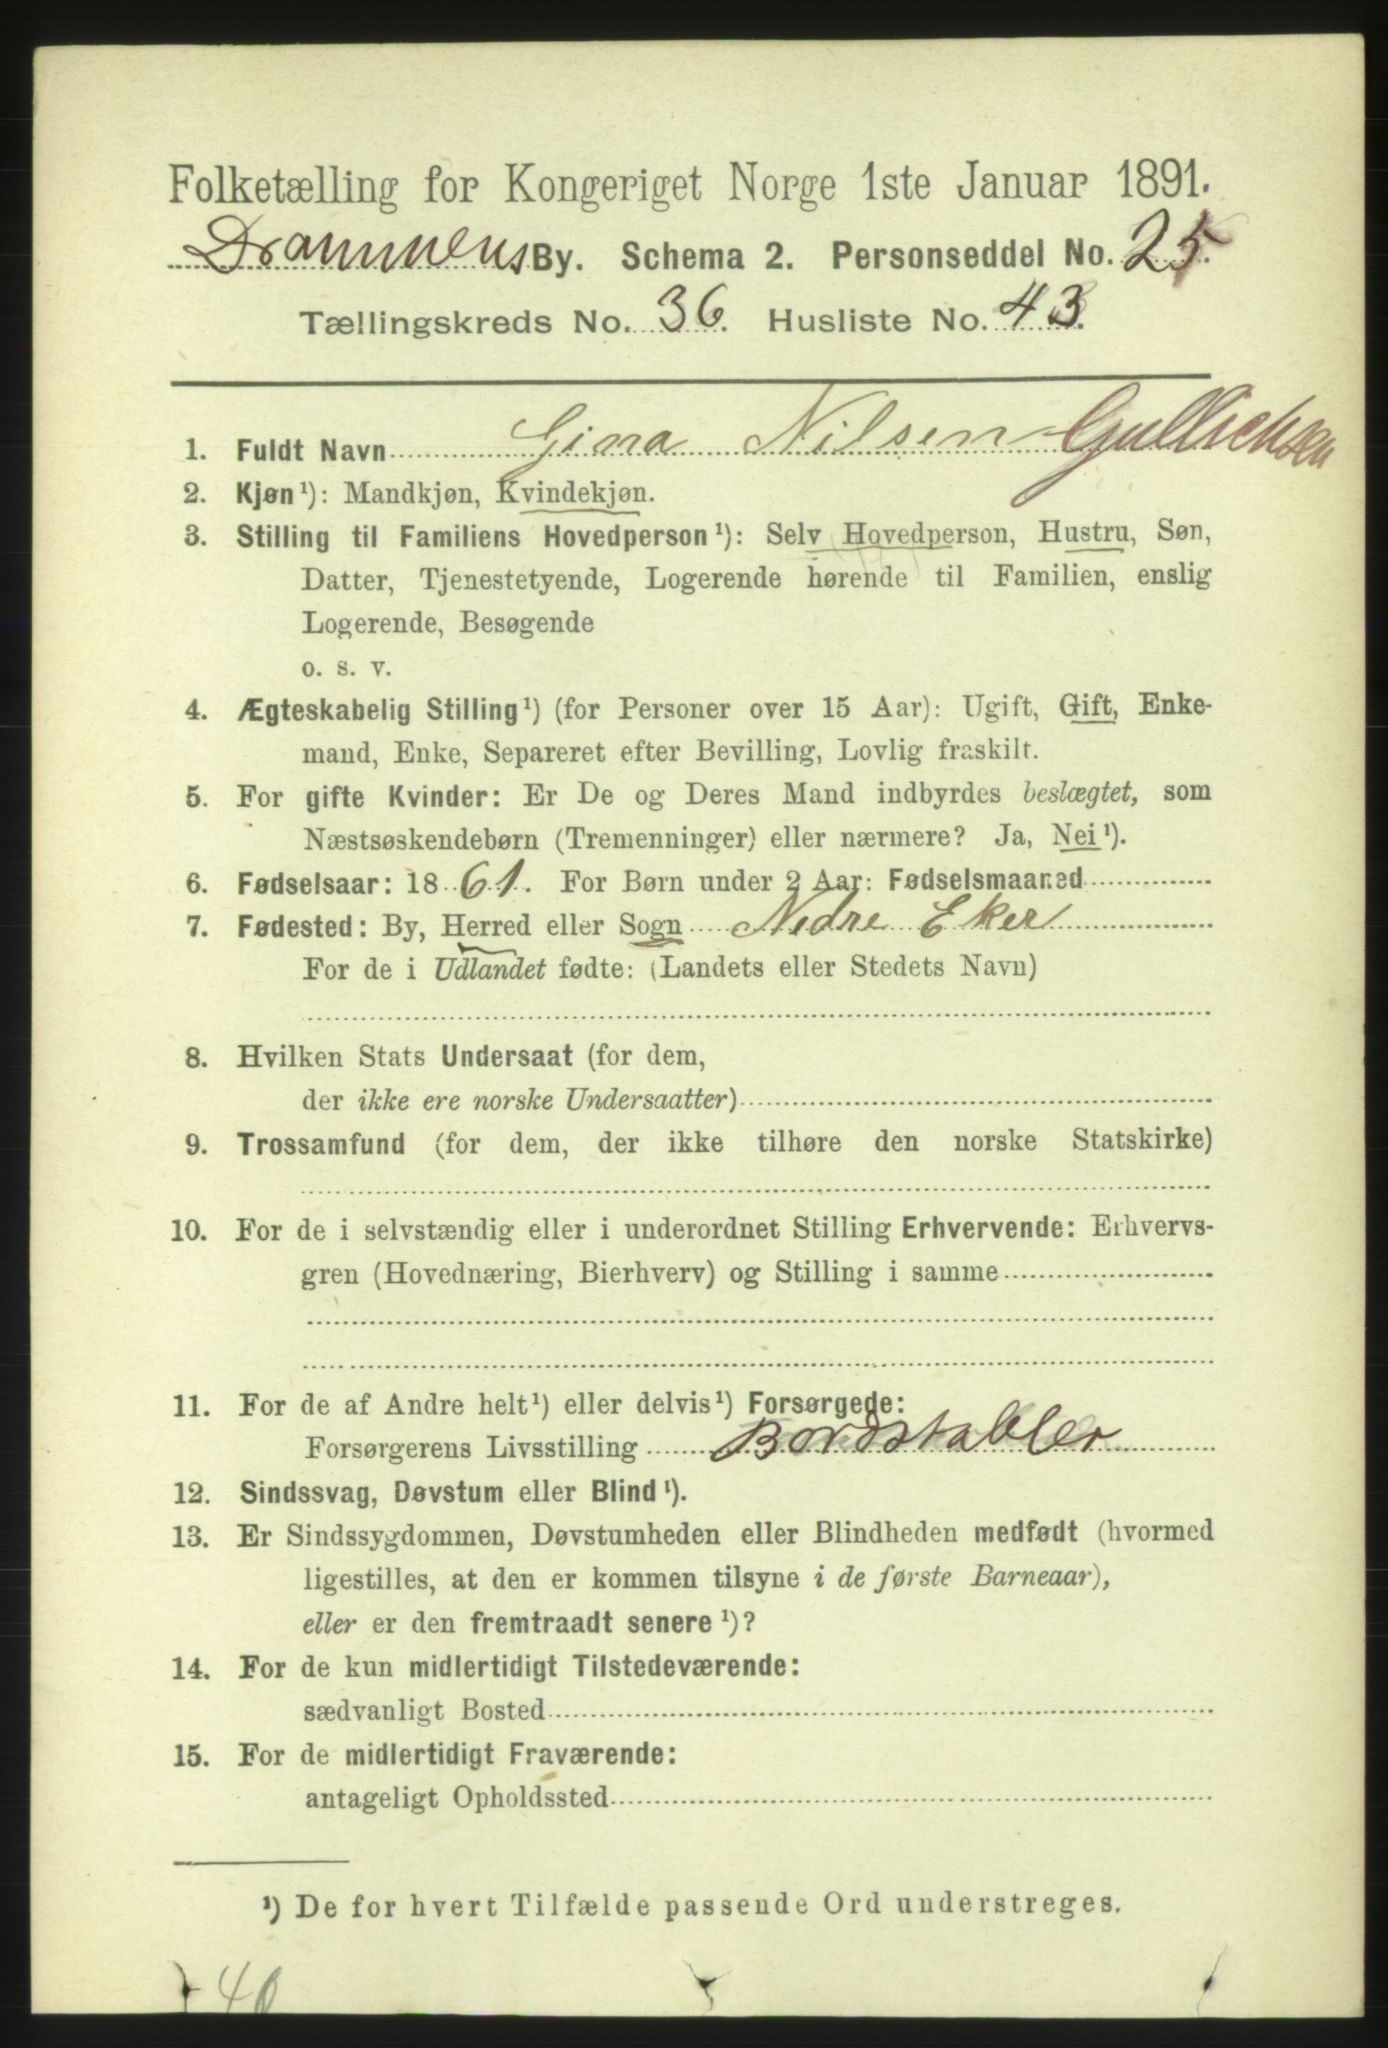 Folketælling for Kongeriget Norge 1ste Januar 1891.
Drammens By. Schema 2. Personseddel No. 25.
Tællingskreds No. 36. Husliste No. 43.
1. Fuldt Navn Gina Nilsen Gullichsen
2. Kjøn¹): Mandkjøn, Kvindekjøn.
3. Stilling til Familiens Hovedperson¹): Selv Hovedperson, Hustru, Søn,
Datter, Tjenestetyende, Logerende hørende til Familien, enslig
Logerende, Besøgende
o. s. v.
4. Ægteskabelig Stilling¹) (for Personer over 15 Aar): Ugift, Gift, Enke-
mand, Enke, Separeret efter Bevilling, Lovlig fraskilt.
5. For gifte Kvinder: Er De og Deres Mand indbyrdes beslægtet, som
Næstsøskendebørn (Tremenninger) eller nærmere? Ja, Nei¹).
6. Fødselsaar: 1861. For Børn under 2 Aar: Fødselsmaaned
7. Fødested: By, Herred eller Sogn Nedre Eker
For de i Udlandet fødte: (Landets eller Stedets Navn)
8. Hvilken Stats Undersaat (for dem,
der ikke ere norske Undersaatter)
9. Trossamfund (for dem, der ikke tilhøre den norske Statskirke)
10. For de i selvstændig eller i underordnet Stilling Erhvervende: Erhvervs-
gren (Hovednæring, Bierhverv) og Stilling i samme
11. For de af Andre helt¹) eller delvis¹) Forsørgede:
Forsørgerens Livsstilling Bordstabler
12. Sindssvag, Døvstum eller Blind¹).
13. Er Sindssygdommen, Døvstumheden eller Blindheden medfødt (hvormed
ligestilles, at den er kommen tilsyne i de første Barneaar),
eller er den fremtraadt senere¹)?
14. For de kun midlertidigt Tilstedeværende:
sædvanligt Bosted
15. For de midlertidigt Fraværende:
antageligt Opholdssted
¹) De for hvert Tilfælde passende Ord understreges.
40